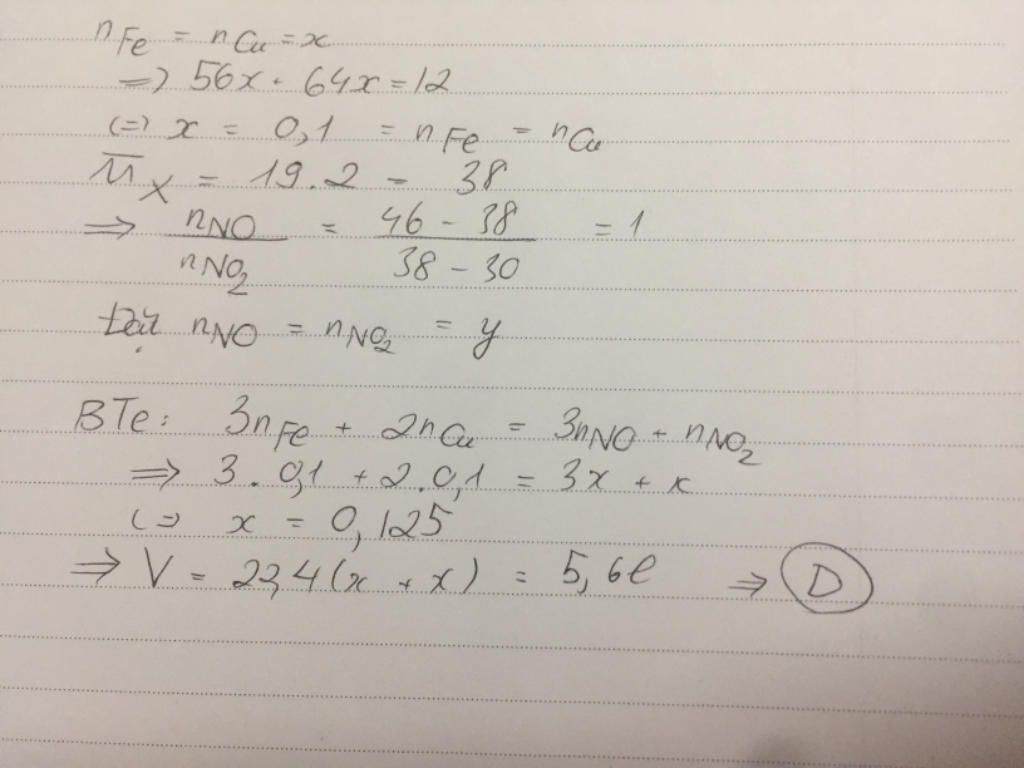 nFe = nCu = x
=> 56x + 64x = 12
(=) x = 0,1 = nFe = nCu
M̅X = 19.2 = 38
=> nNO / nNO2 = (46 - 38) / (38 - 30) = 1
Đặt nNO = nNO2 = y
BTe: 3nFe + 2nCu = 3nNO + nNO2
=> 3.0,1 + 2.0,1 = 3x + x
(=> x = 0,125
=> V = 22,4(x + x) = 5,6l => D